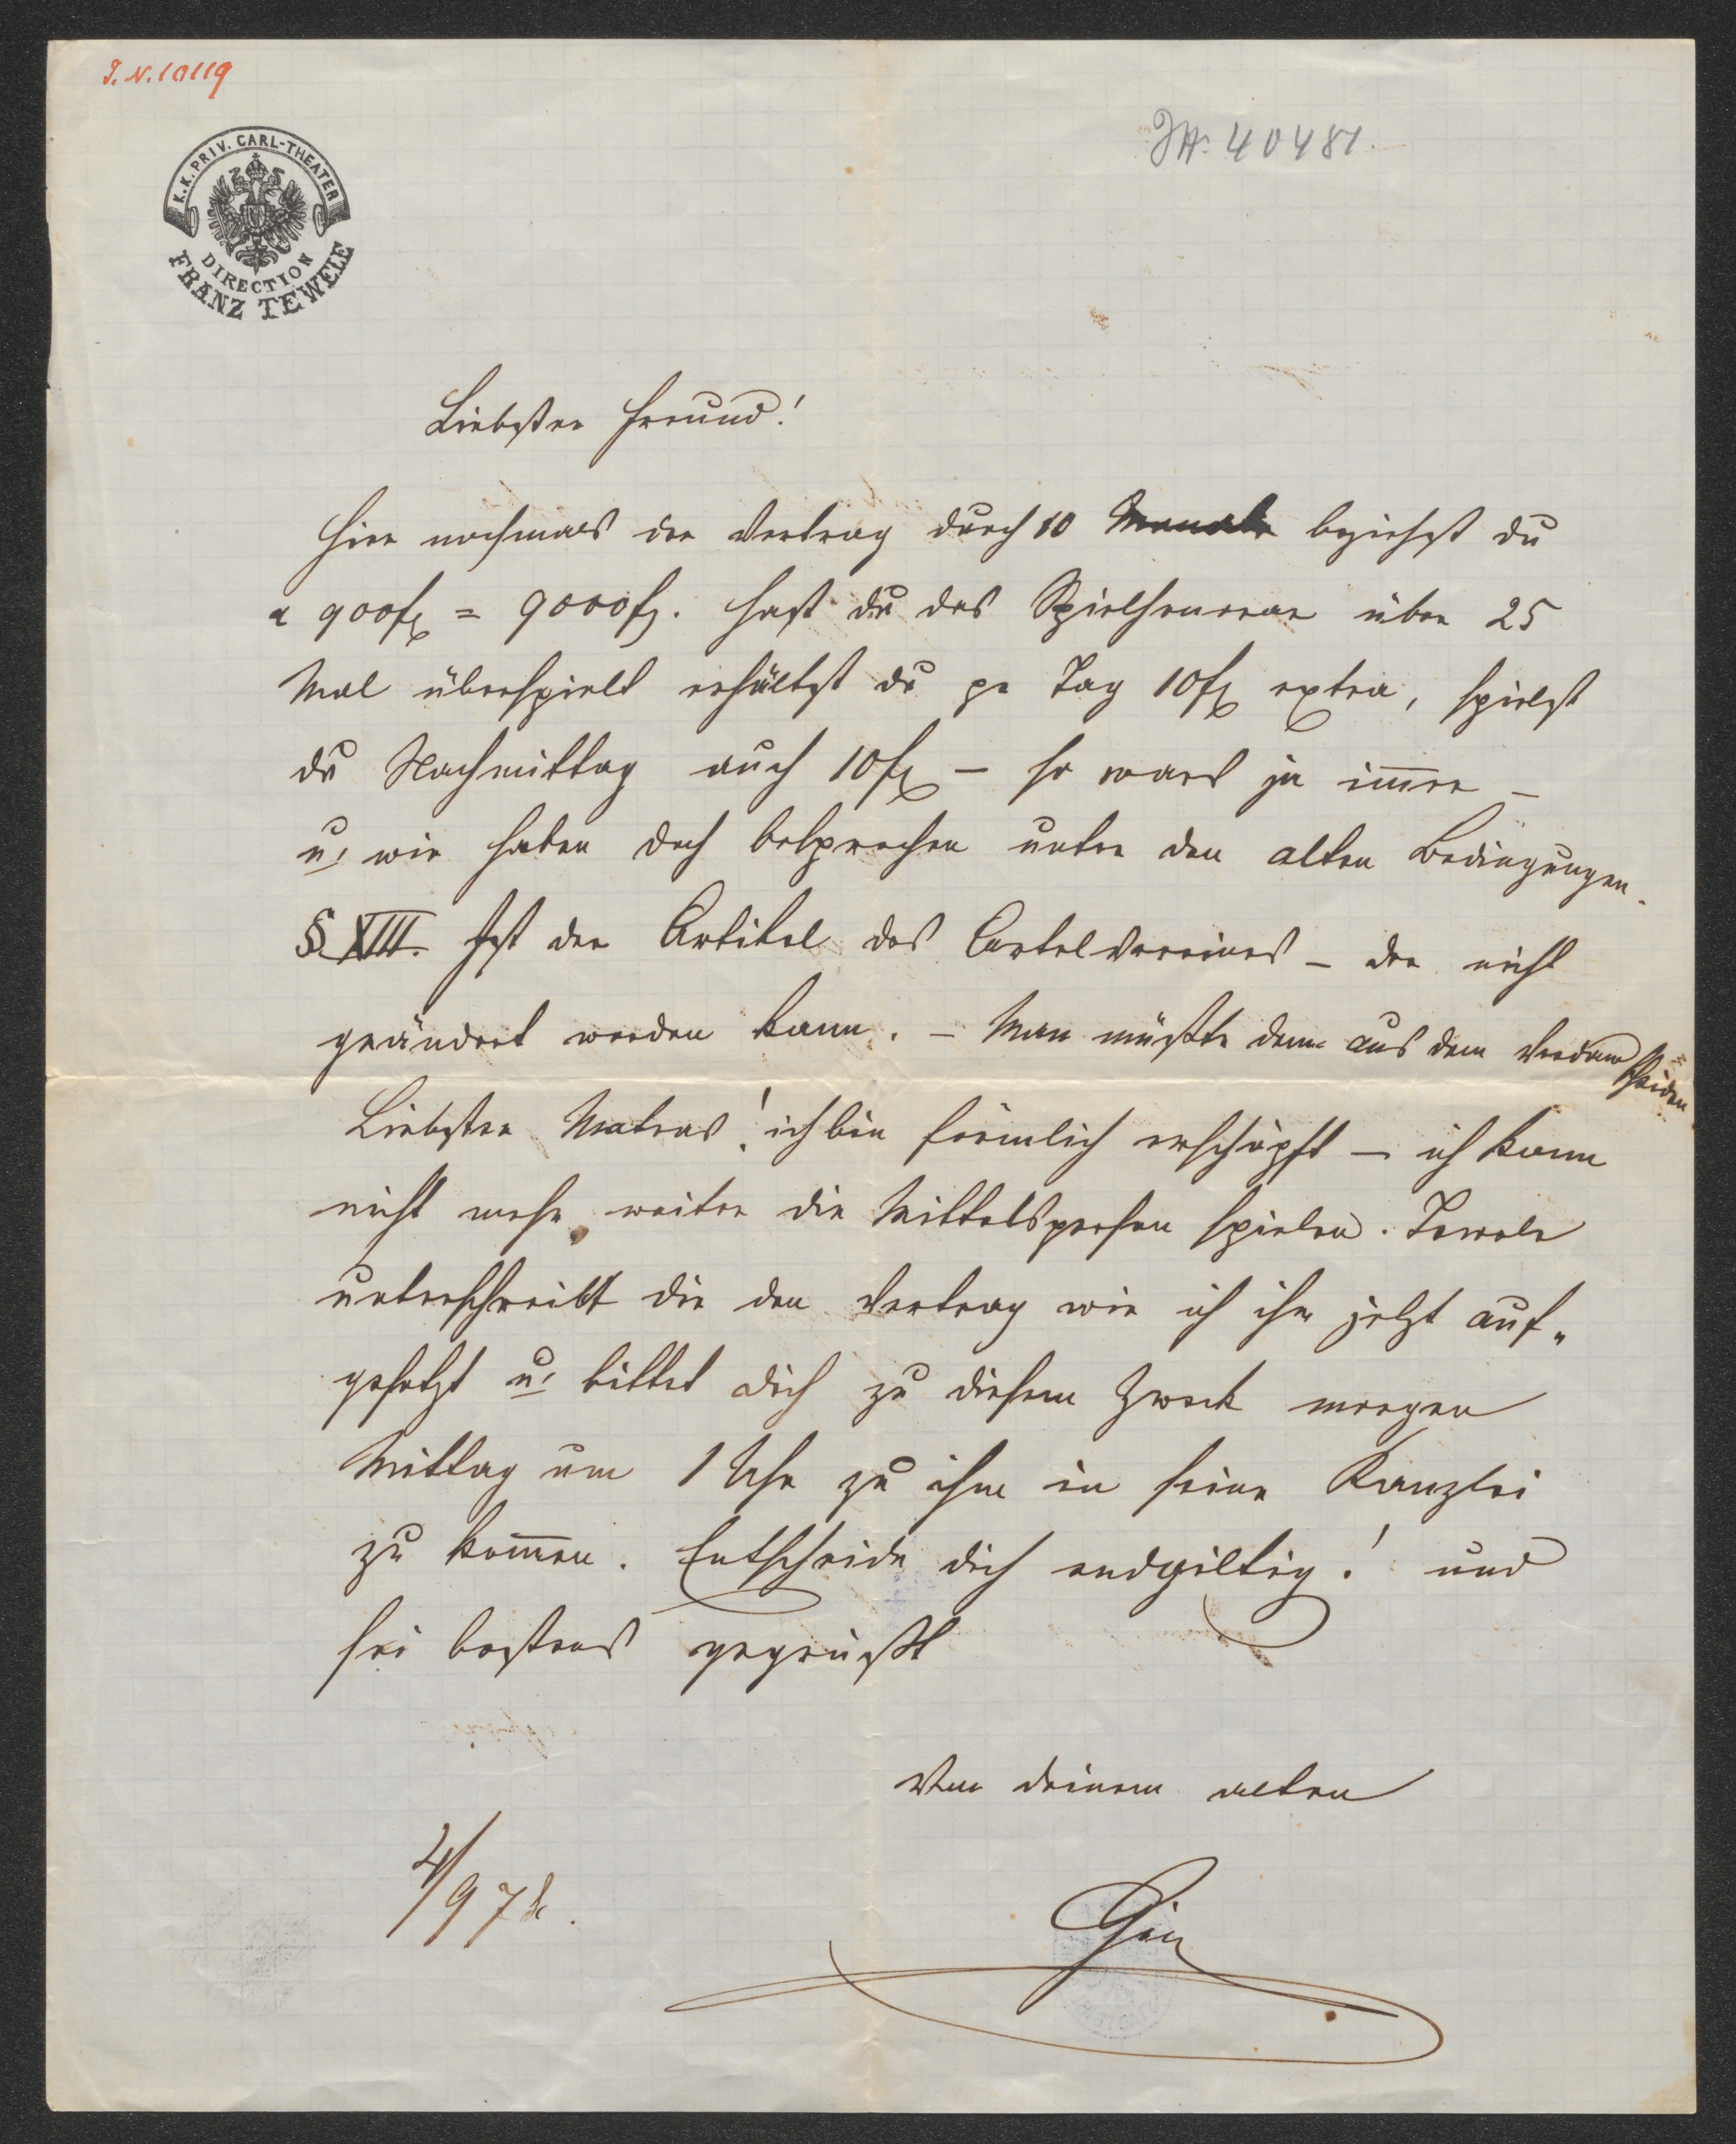 I. N. 10119
JN. 40481.
K. K. PRIV. CARL-THEATER
DIRECTION
FRANZ TEWELE
Liebster Freund!
Hier nochmals der Vertrag durch 10 Monate beziehst du
a 900 fl = 9000 fl. hast du das Spielhonorar über 25
Mal überspielt erhältst du pr Tag 10 fl extra, spielst
du Nachmittag auch 10 fl – so wars ja im̅er –
u. wir haben doch besprochen unter den alten Bedingungen.
§ XIII. Ist der Artikel des Cartelvereines – der nicht
geändert werden kann. – Man müßte denn aus dem
scheiden
Liebster Matras! ich bin förmlich erschöpft – ich kann
nicht mehr weiter die Mittelsperson spielen. Tewele
unterschreibt dir den Vertrag wie ich ihn jetzt auf„
gesetzt u. bittet dich zu diesem Zweck morgen
Mittag um 1 Uhr zu ihm in seine Kanzlei
zu kom̅en. Entscheide dich endgiltig! und
sei bestens gegrüßt
Von deinem alten
4/9 78.